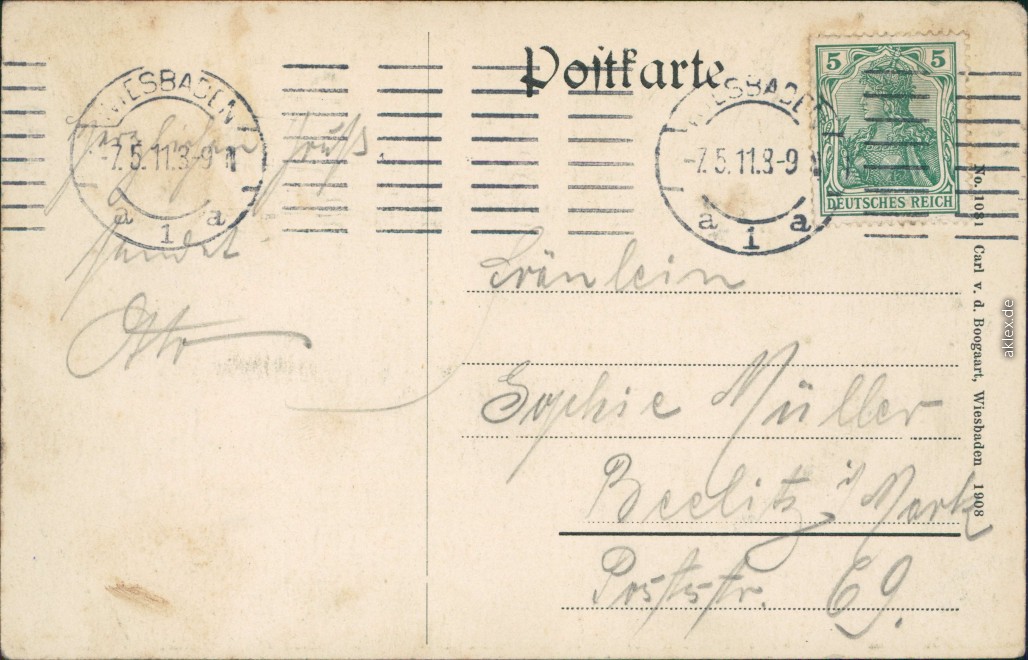 Postkarte
5 5
DEUTSCHES REICH
WIESBADEN
-7.5.11.8-9 N
a 1 a
WIESBADEN
-7.5.11.8-9 N
a 1 a
Herzlichen Gruß
sendet
Otto
Fräulein
Sophie Müller
Beelitz i/Mark
Poststr. 69.
No. 1081 Carl v. d. Boogaart, Wiesbaden 1908
aklex.de